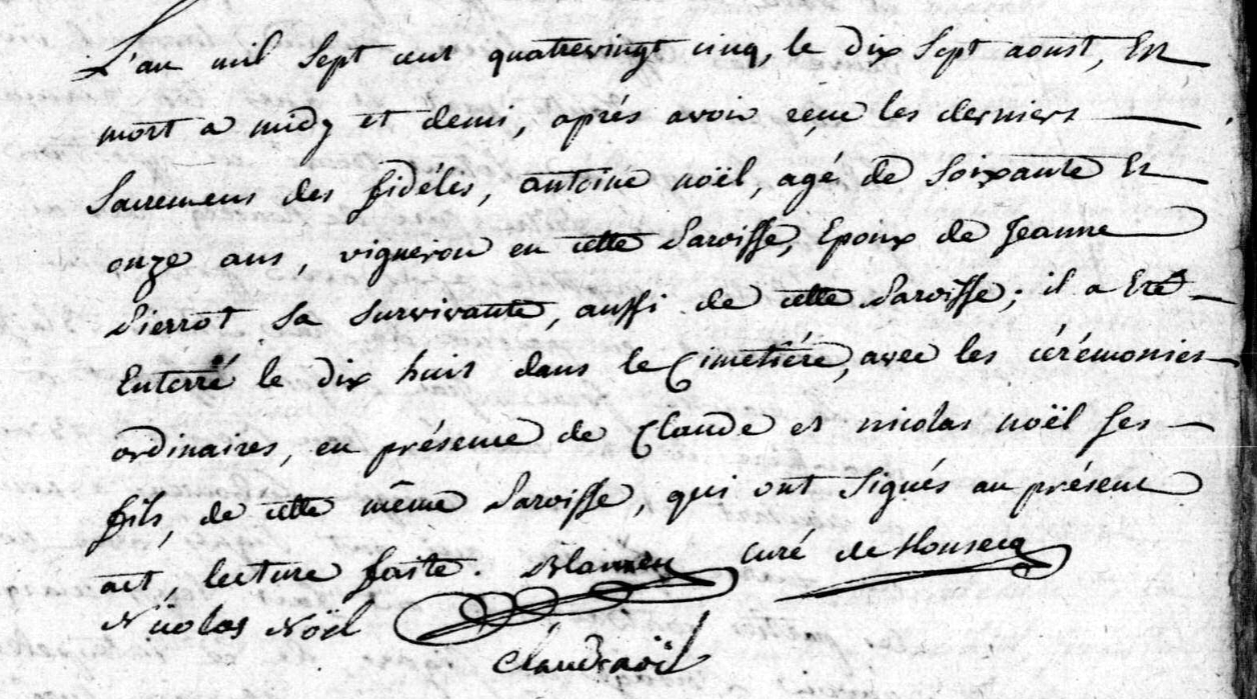 L'an mil Sept cent quatrevingt cinq, le dix Sept aoust, Est
mort a midy et demi, aprés avoir reçu les derniers
Sacremens des fidélis, antoine noël, agé de Soixante Et
onze ans, vigneron en cette Paroisse, Epoux de Jeanne
Pierrot Sa Survivante, aussi de cette Paroisse; il a Eté
Enterré le dix huit dans le Cimetiére, avec les cérémonies
ordinaires, en présence de Claude et nicolas noël Ses
fils, de cette même Paroisse, qui ont Signés au présent
act, lecture faite. curé de
Nicolas Noël
Claude noïl